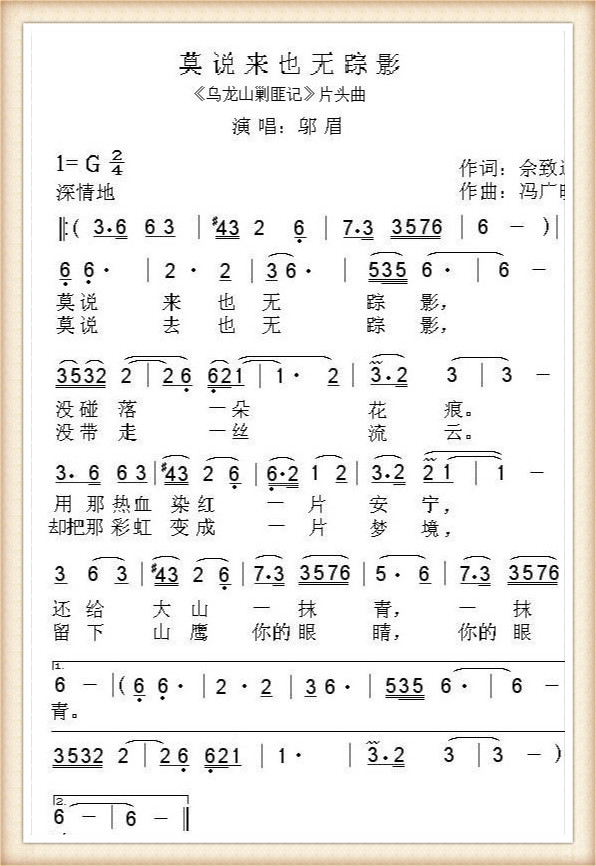 莫说来也无踪影
《乌龙山剿匪记》片头曲
演唱：邬眉
1=G 2/4
作词：佘致迪
深情地
作曲：冯广映
‖:( 3·6 6 3 | #43 2 6 | 7·3 3576 | 6 － )|
6 6· | 2 · 2 | 3 6· | 535 6· | 6 －
莫说 来 也 无 踪 影，
莫说 去 也 无 踪 影，
3532 2 | 2 6 621 | 1· 2 | 3·2 3 | 3 －
没碰 落 一朵 花 痕。
没带 走 一丝 流 云。
3· 6 6 3 | #43 2 6 | 6·2 1 2 | 3·2 2 1 | 1 －
用 那 热血 染红 一 片 安 宁，
却把那 彩虹 变成 一 片 梦 境，
3 6 3 | #43 2 6 | 7·3 3576 | 5· 6 | 7·3 3576
还 给 大 山 一 抹 青， 一 抹
留 下 山 鹰 你的 眼 睛， 你的 眼
1.
6 － |( 6 6· | 2 · 2 | 3 6· | 535 6· | 6 －
青。
3532 2 | 2 6 621 | 1· | 3·2 3 | 3 － )
2.
6 － | 6 － ‖